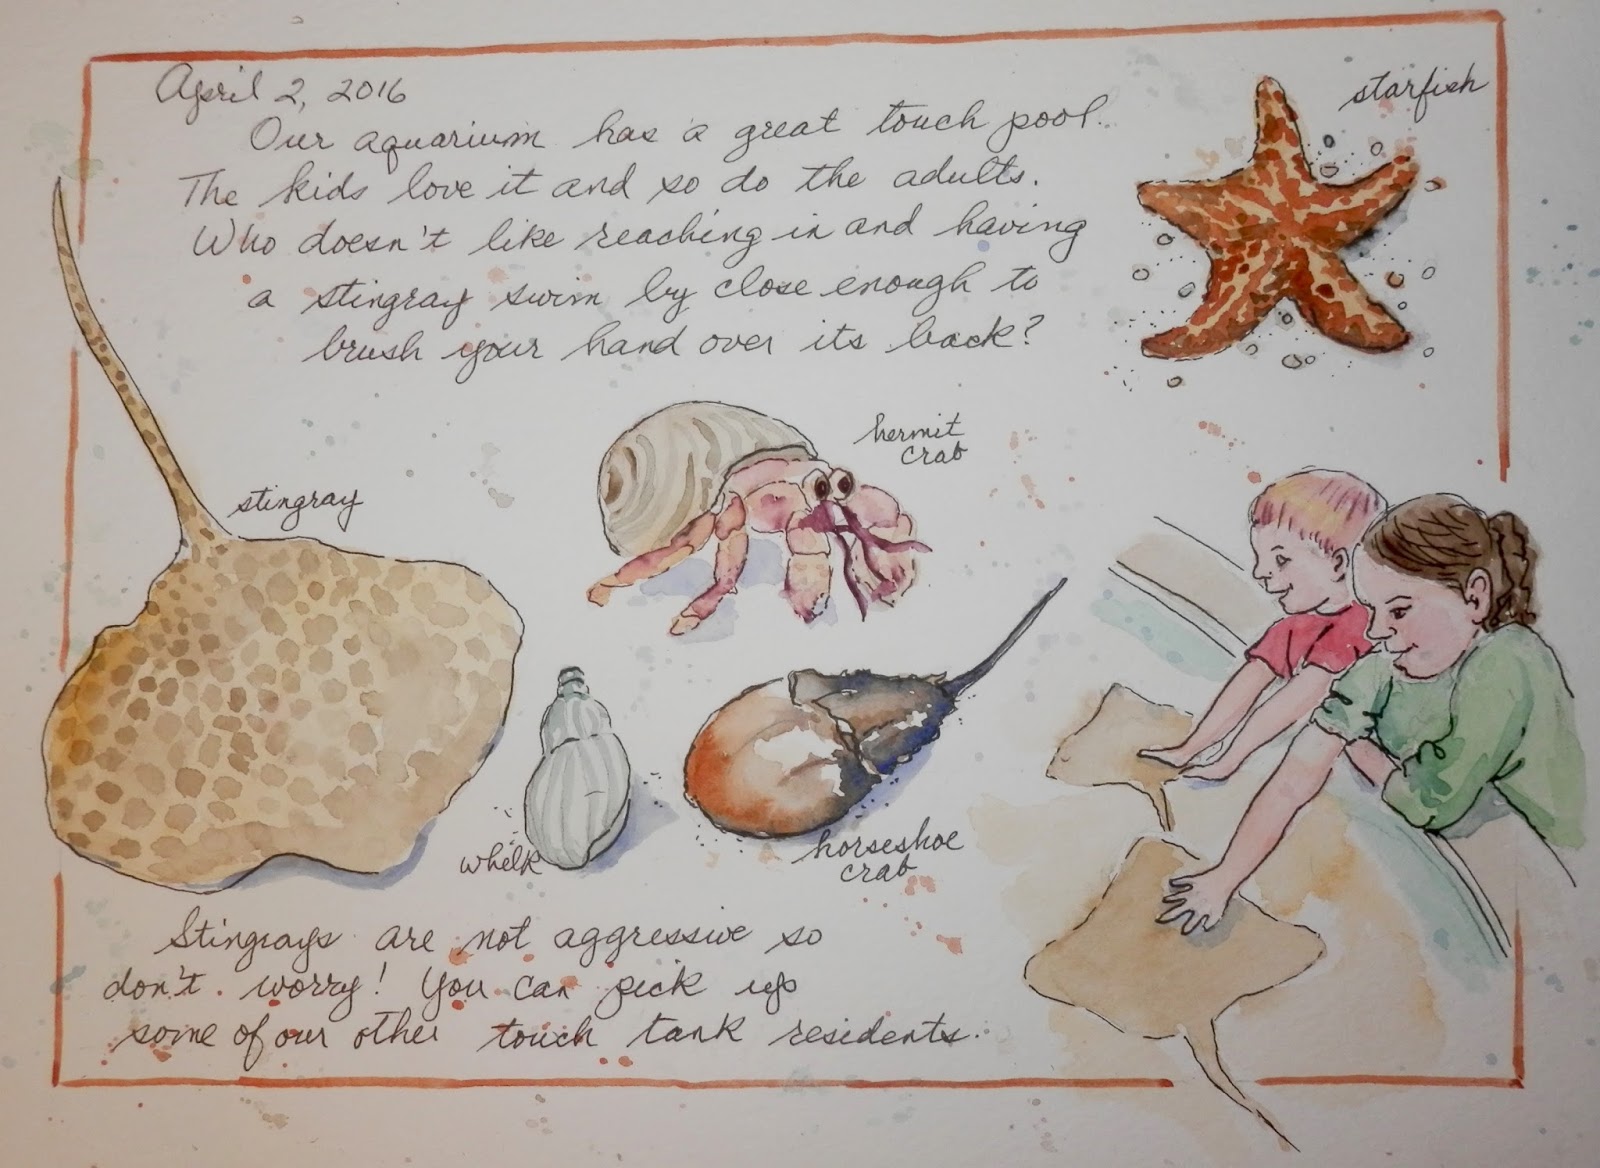 April 2, 2016
Our aquarium has a great touch pool.
The kids love it and so do the adults.
Who doesn't like reaching in and having
a stingray swim by close enough to
brush your hand over its back?
starfish
hermit
crab
stingray
whelk
horseshoe
crab
Stingrays are not aggressive so
don't worry! You can pick up
some of our other touch tank residents.